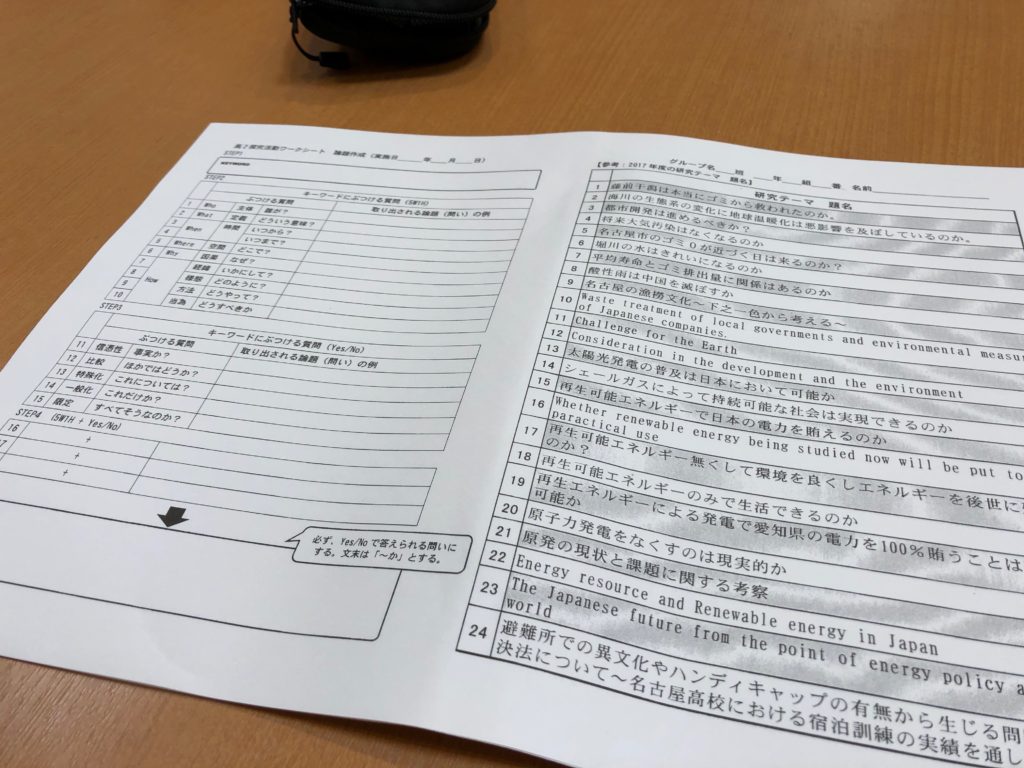 高2探究活動ワークシート 論題作成(実施日 年 月 日)
STEP1
KEYWORD
STEP2
キーワードにぶつける質問 (5W1H)
ぶつける質問 取り出される論題(問い)の例
1 Who 主体 誰が?
2 What 定義 どういう意味?
3 When 時間 いつから?
4 いつまで?
5 Where 空間 どこで?
6 Why 因果 なぜ?
7 経緯 いかにして?
8 How 様態 どのように?
9 方法 どうやって?
10 当為 どうすべきか
STEP3
キーワードにぶつける質問 (Yes/No)
ぶつける質問 取り出される論題(問い)の例
11 信憑性 事実か?
12 比較 ほかではどうか?
13 特殊化 これについては?
14 一般化 これだけか?
15 限定 すべてそうなのか?
STEP4 (5W1H + Yes/No)
16 +
+
+
必ず、Yes/Noで答えられる問いに
する。文末は「~か」とする。
グループ名 班 年 組 番 名前
【参考:2017年度の研究テーマ 題名】
研究テーマ 題名
1 藤前干潟は本当にゴミから救われたのか。
2 海川の生態系の変化に地球温暖化は悪影響を及ぼしているのか。
3 都市開発は進めるべきか?
4 将来大気汚染はなくなるのか
5 名古屋市のゴミ0が近づく日は来るのか?
6 堀川の水はきれいになるのか
7 平均寿命とゴミ排出量に関係はあるのか
8 酸性雨は中国を滅ぼすか
9 名古屋の漁撈文化~下之一色から考える~
10 Waste treatment of local governments and environmental measu
of Japanese companies.
11 Challenge for the Earth
12 Consideration in the development and the environment
13 太陽光発電の普及は日本において可能か
14 シェールガスによって持続可能な社会は実現できるのか
15 再生可能エネルギーで日本の電力を賄えるのか
16 Whether renewable energy being studied now will be put to
paractical use
17 再生可能エネルギー無くして環境を良くしエネルギーを後世に
のか?
18 再生可能エネルギーのみで生活できるのか
19 再生エネルギーによる発電で愛知県の電力を100%賄うことは
可能か
20 原子力発電をなくすのは現実的か
21 原発の現状と課題に関する考察
22 Energy resource and Renewable energy in Japan
23 The Japanese future from the point of energy policy a
world
24 避難所での異文化やハンディキャップの有無から生じる問
決法について~名古屋高校における宿泊訓練の実績を通し